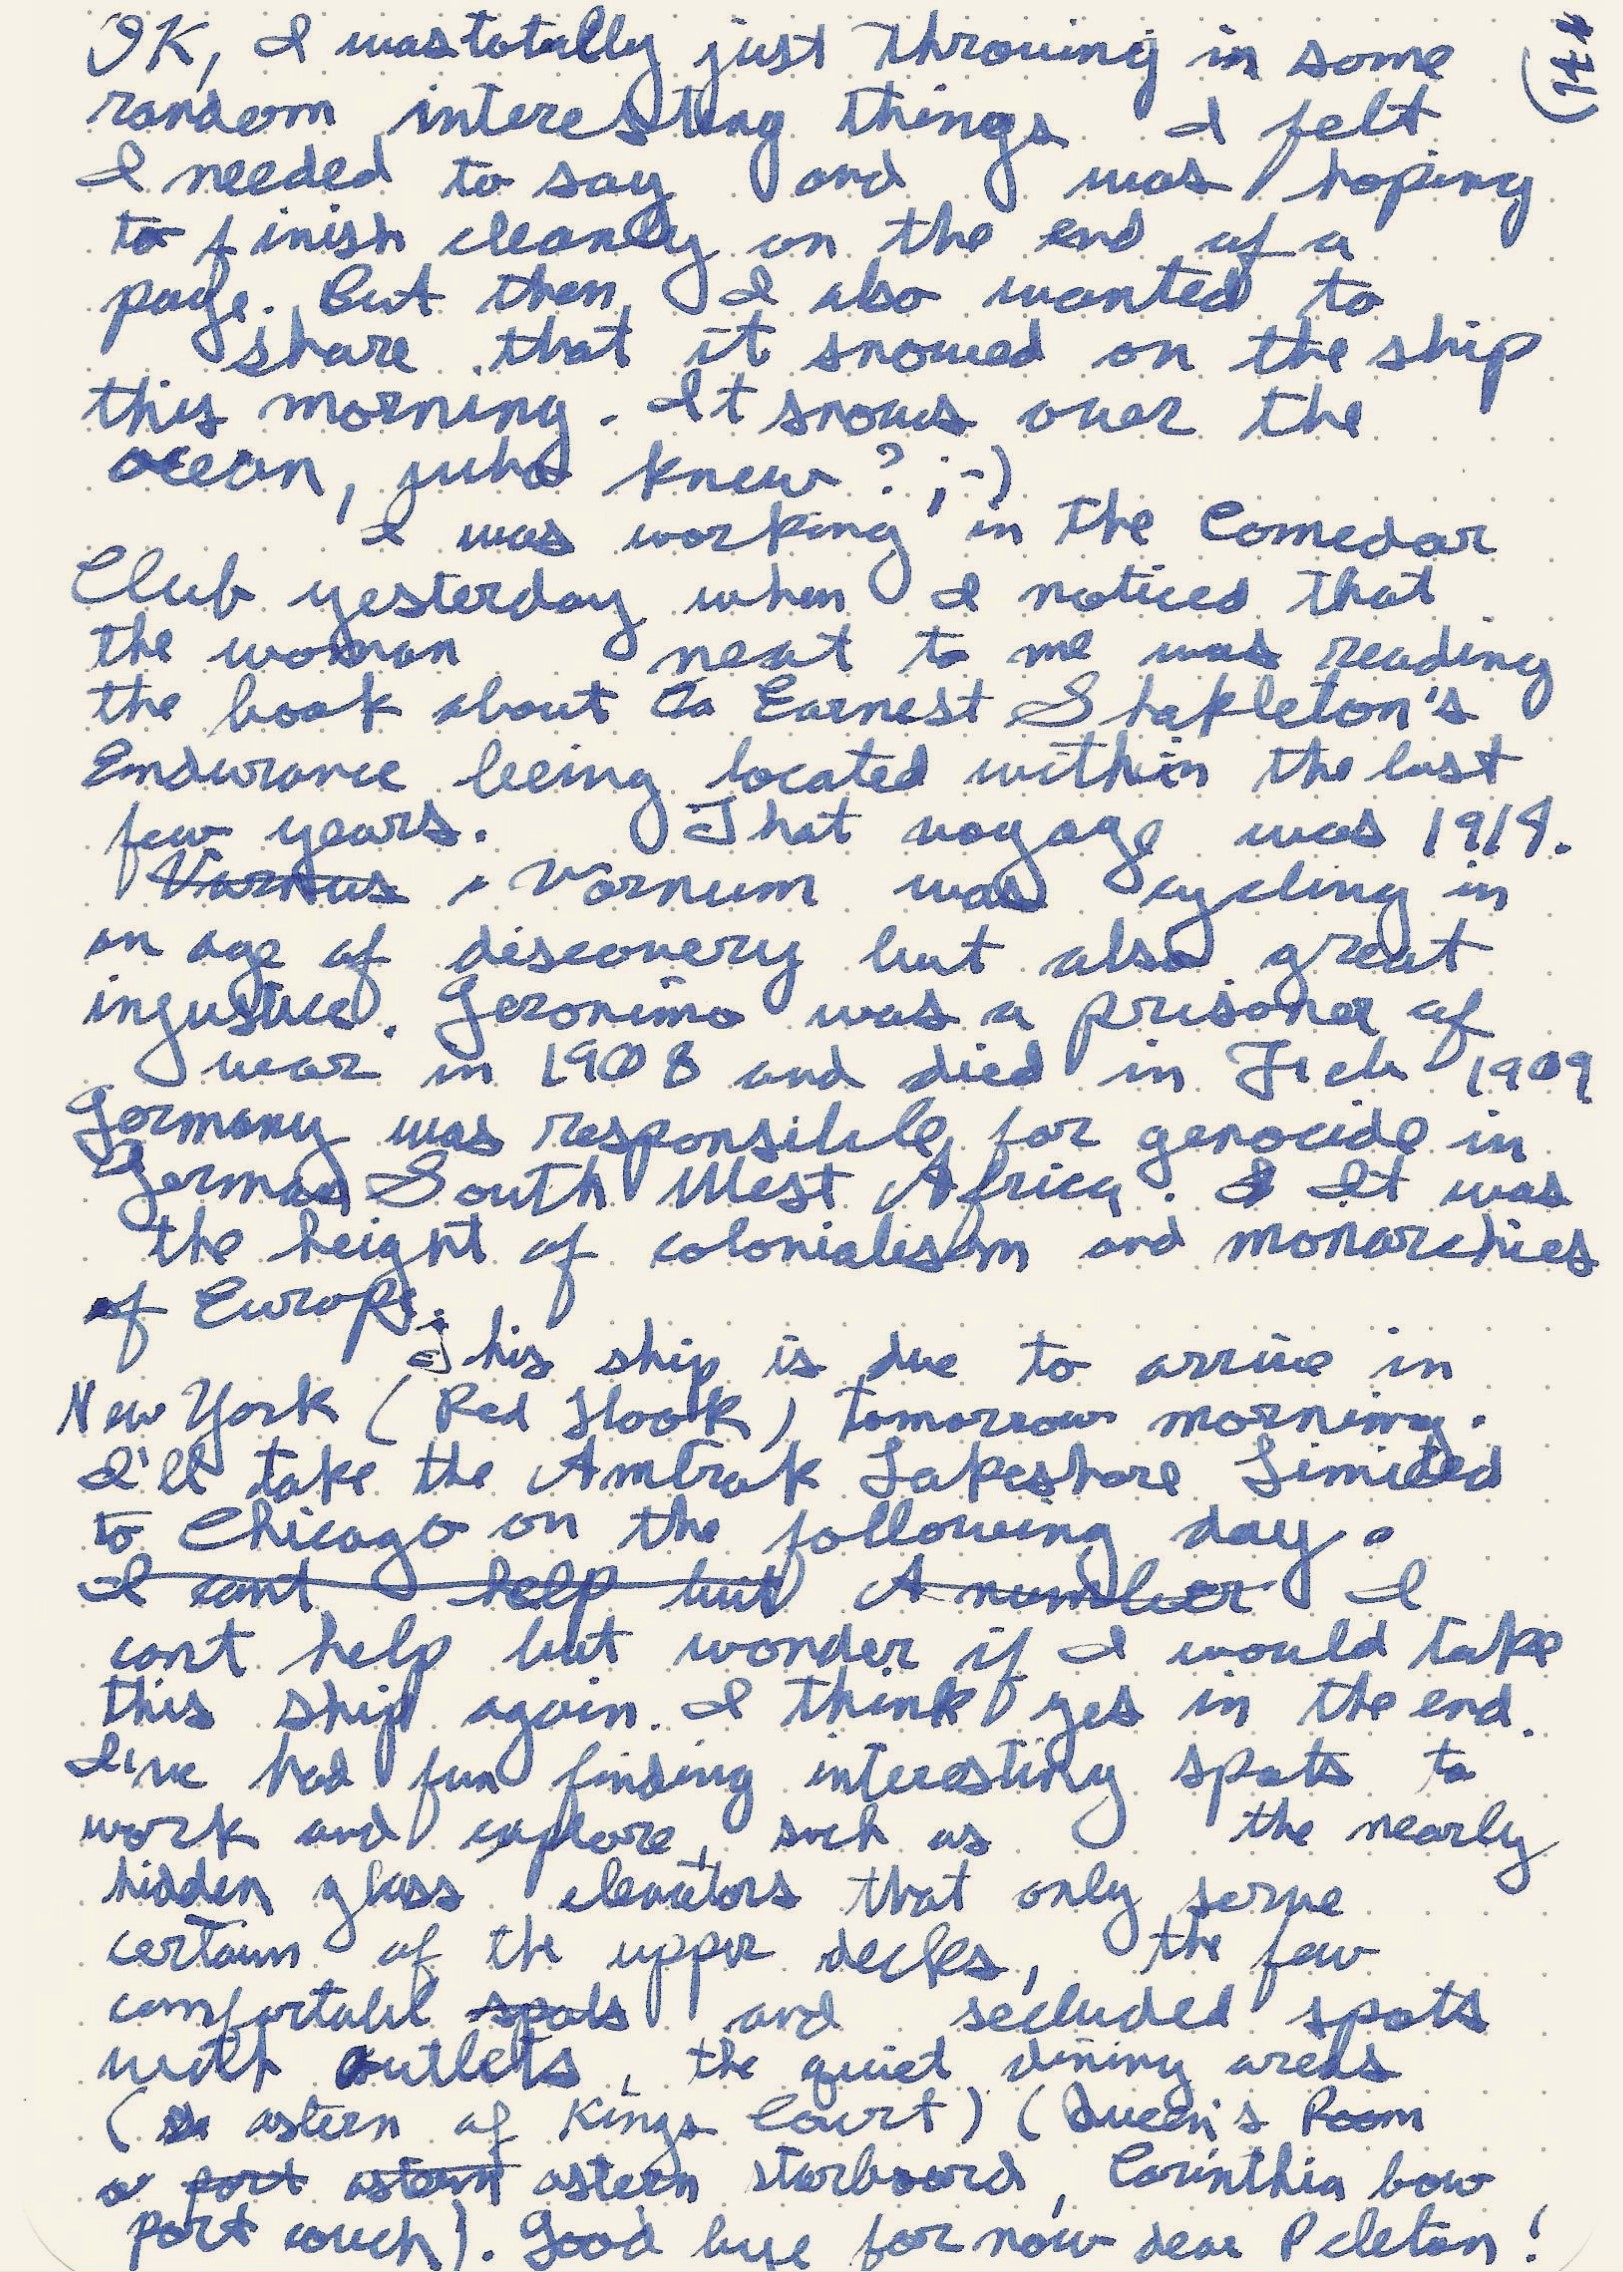 OK, I was totally just throwing in some
random interesting things I felt
I needed to say and was hoping
to finish cleanly on the end of a
page. But then, I also wanted to
share that it snowed on the ship
this morning. It snows over the
ocean, who knew? ;-)
I was working in the Comedor
Club yesterday when I noticed that
the woman next to me was reading
the book about Earnest Shakleton's
Endurance being located within the last
few years. That voyage was 1914.
Varnus Vornum was cycling in
an age of discovery but also great
injustice. Geronimo was a prisoner of
war in 1908 and died in Feb 1909
Germany was responsible for genocide in
German South West Africa. It was
the height of colonialism and monarchies
of Europe.
This ship is due to arrive in
New York (Red Hook) tomorrow morning.
I'll take the Amtrak Lakeshore Limited
to Chicago on the following day.
I cant help but A number I
cant help but wonder if I would take
this ship again. I think yes in the end.
I've had fun finding interesting spots to
work and explore, such as the nearly
hidden glass elevators that only serve
certain of the upper decks, the few
comfortabl spots and secluded spots
with outlets, the quiet dining areas
(astern of Kings Court) (Queen's Room
port astern astern starboard, Carinthia bow
port couch). Good bye for now dear Peleton!